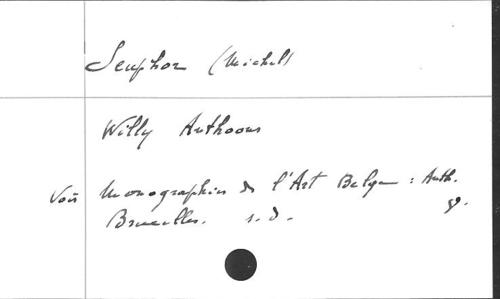 Seuphor (Michel)
Willy Anthoons
Voir Monographies de l'Art Belge : Anth.
Bruxelles. s.d.